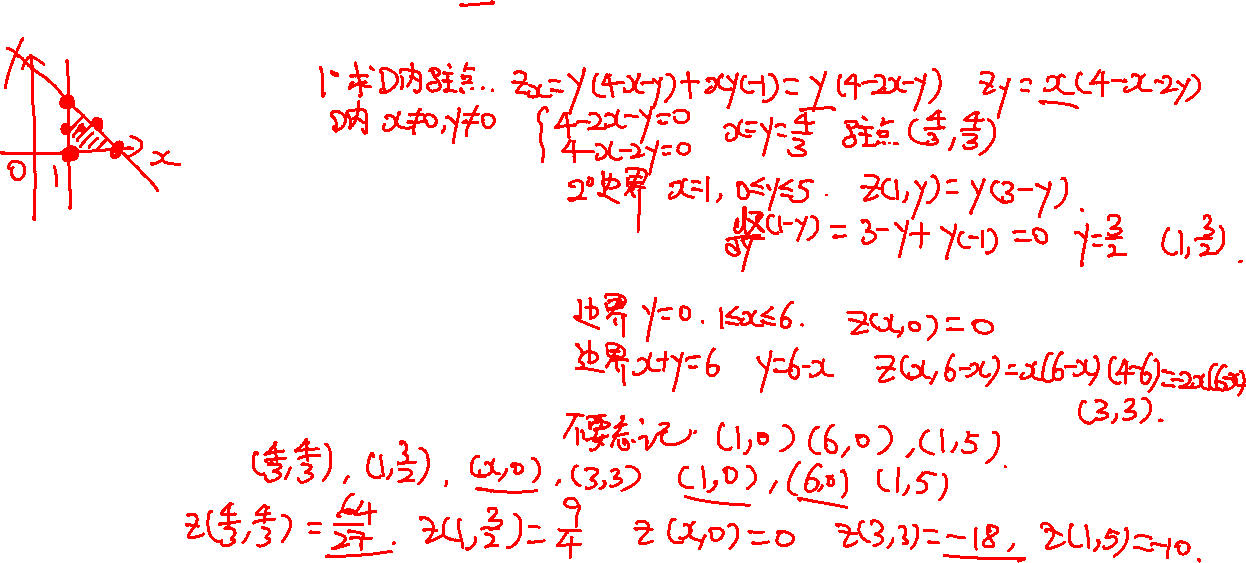 1° 求D内驻点.. Zx=y(4-x-y)+xy(-1)=y(4-2x-y) Zy=x(4-x-2y)
D内 x≠0,y≠0 { 4-2x-y=0 4-x-2y=0 x=y=4/3 驻点(4/3,4/3)
2° 边界 x=1, 0≤y≤5. Z(1,y)=y(3-y).
(1-y)=3-y+y(-1)=0 y=3/2 (1,3/2).
边界 y=0. 1≤x≤6. Z(x,0)=0
边界 x+y=6 y=6-x Z(x,6-x)=x(6-x)(4-6)=-2x(6-x)
(3,3).
不要忘记. (1,0)(6,0),(1,5).
(4/3,4/3), (1,3/2), (x,0), (3,3) (1,0), (6,0) (1,5)
Z(4/3,4/3)=64/27. Z(1,3/2)=9/4 Z(x,0)=0 Z(3,3)=-18, Z(1,5)=-10.
0 1 x